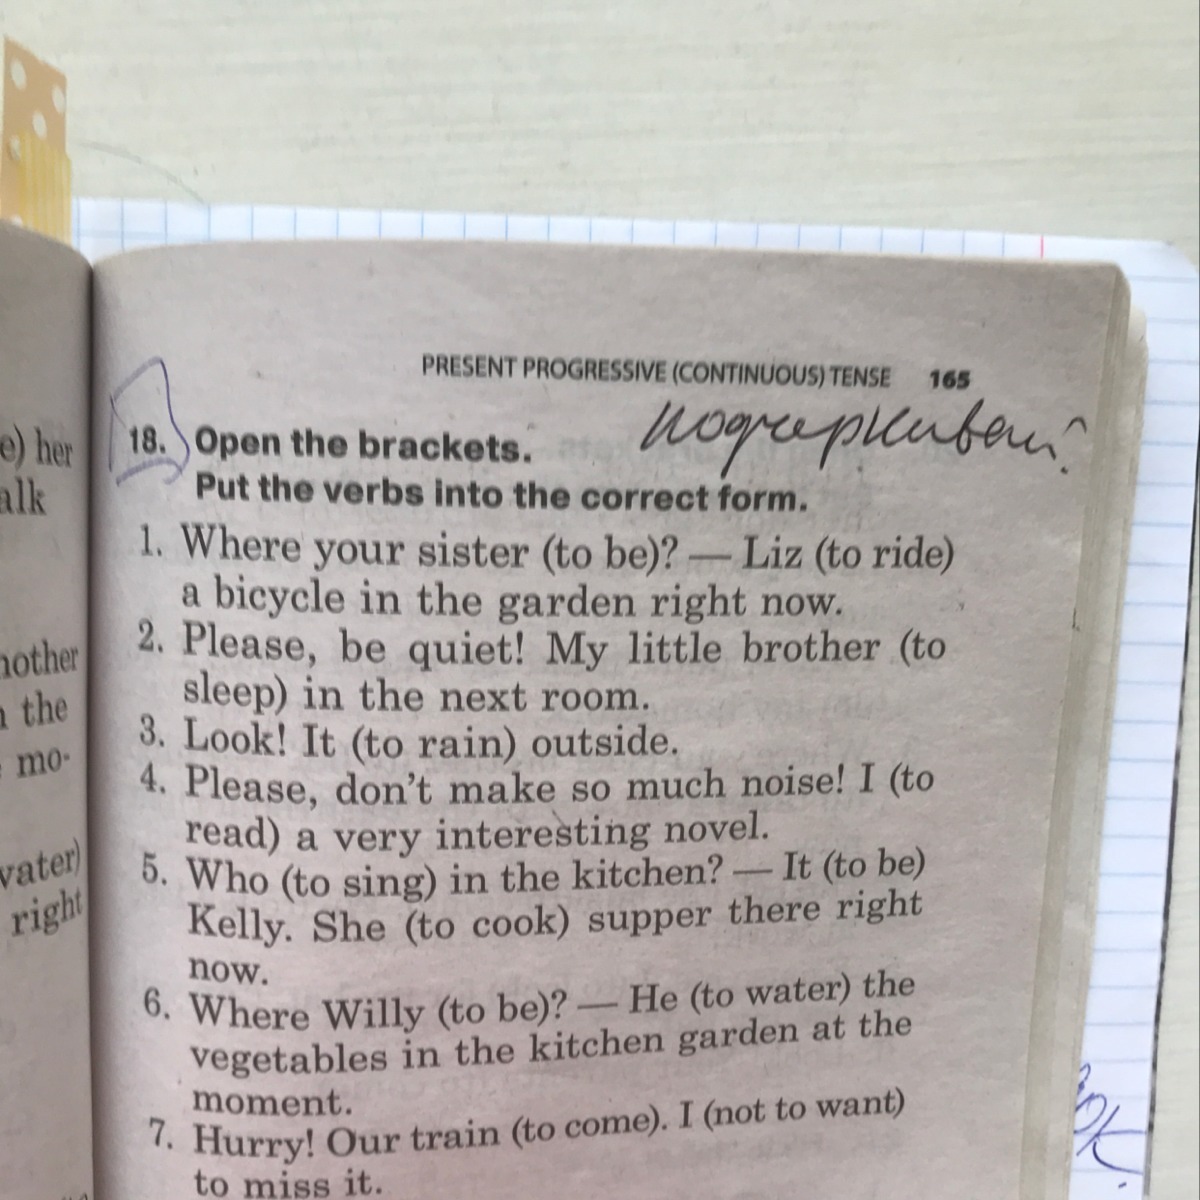 PRESENT PROGRESSIVE (CONTINUOUS) TENSE 165
18. Open the brackets.
Put the verbs into the correct form.
1. Where your sister (to be)? — Liz (to ride)
a bicycle in the garden right now.
2. Please, be quiet! My little brother (to
sleep) in the next room.
3. Look! It (to rain) outside.
4. Please, don't make so much noise! I (to
read) a very interesting novel.
5. Who (to sing) in the kitchen? — It (to be)
Kelly. She (to cook) supper there right
now.
6. Where Willy (to be)? — He (to water) the
vegetables in the kitchen garden at the
moment.
7. Hurry! Our train (to come). I (not to want)
to miss it.
e) her
alk
nother
n the
mo-
water)
right